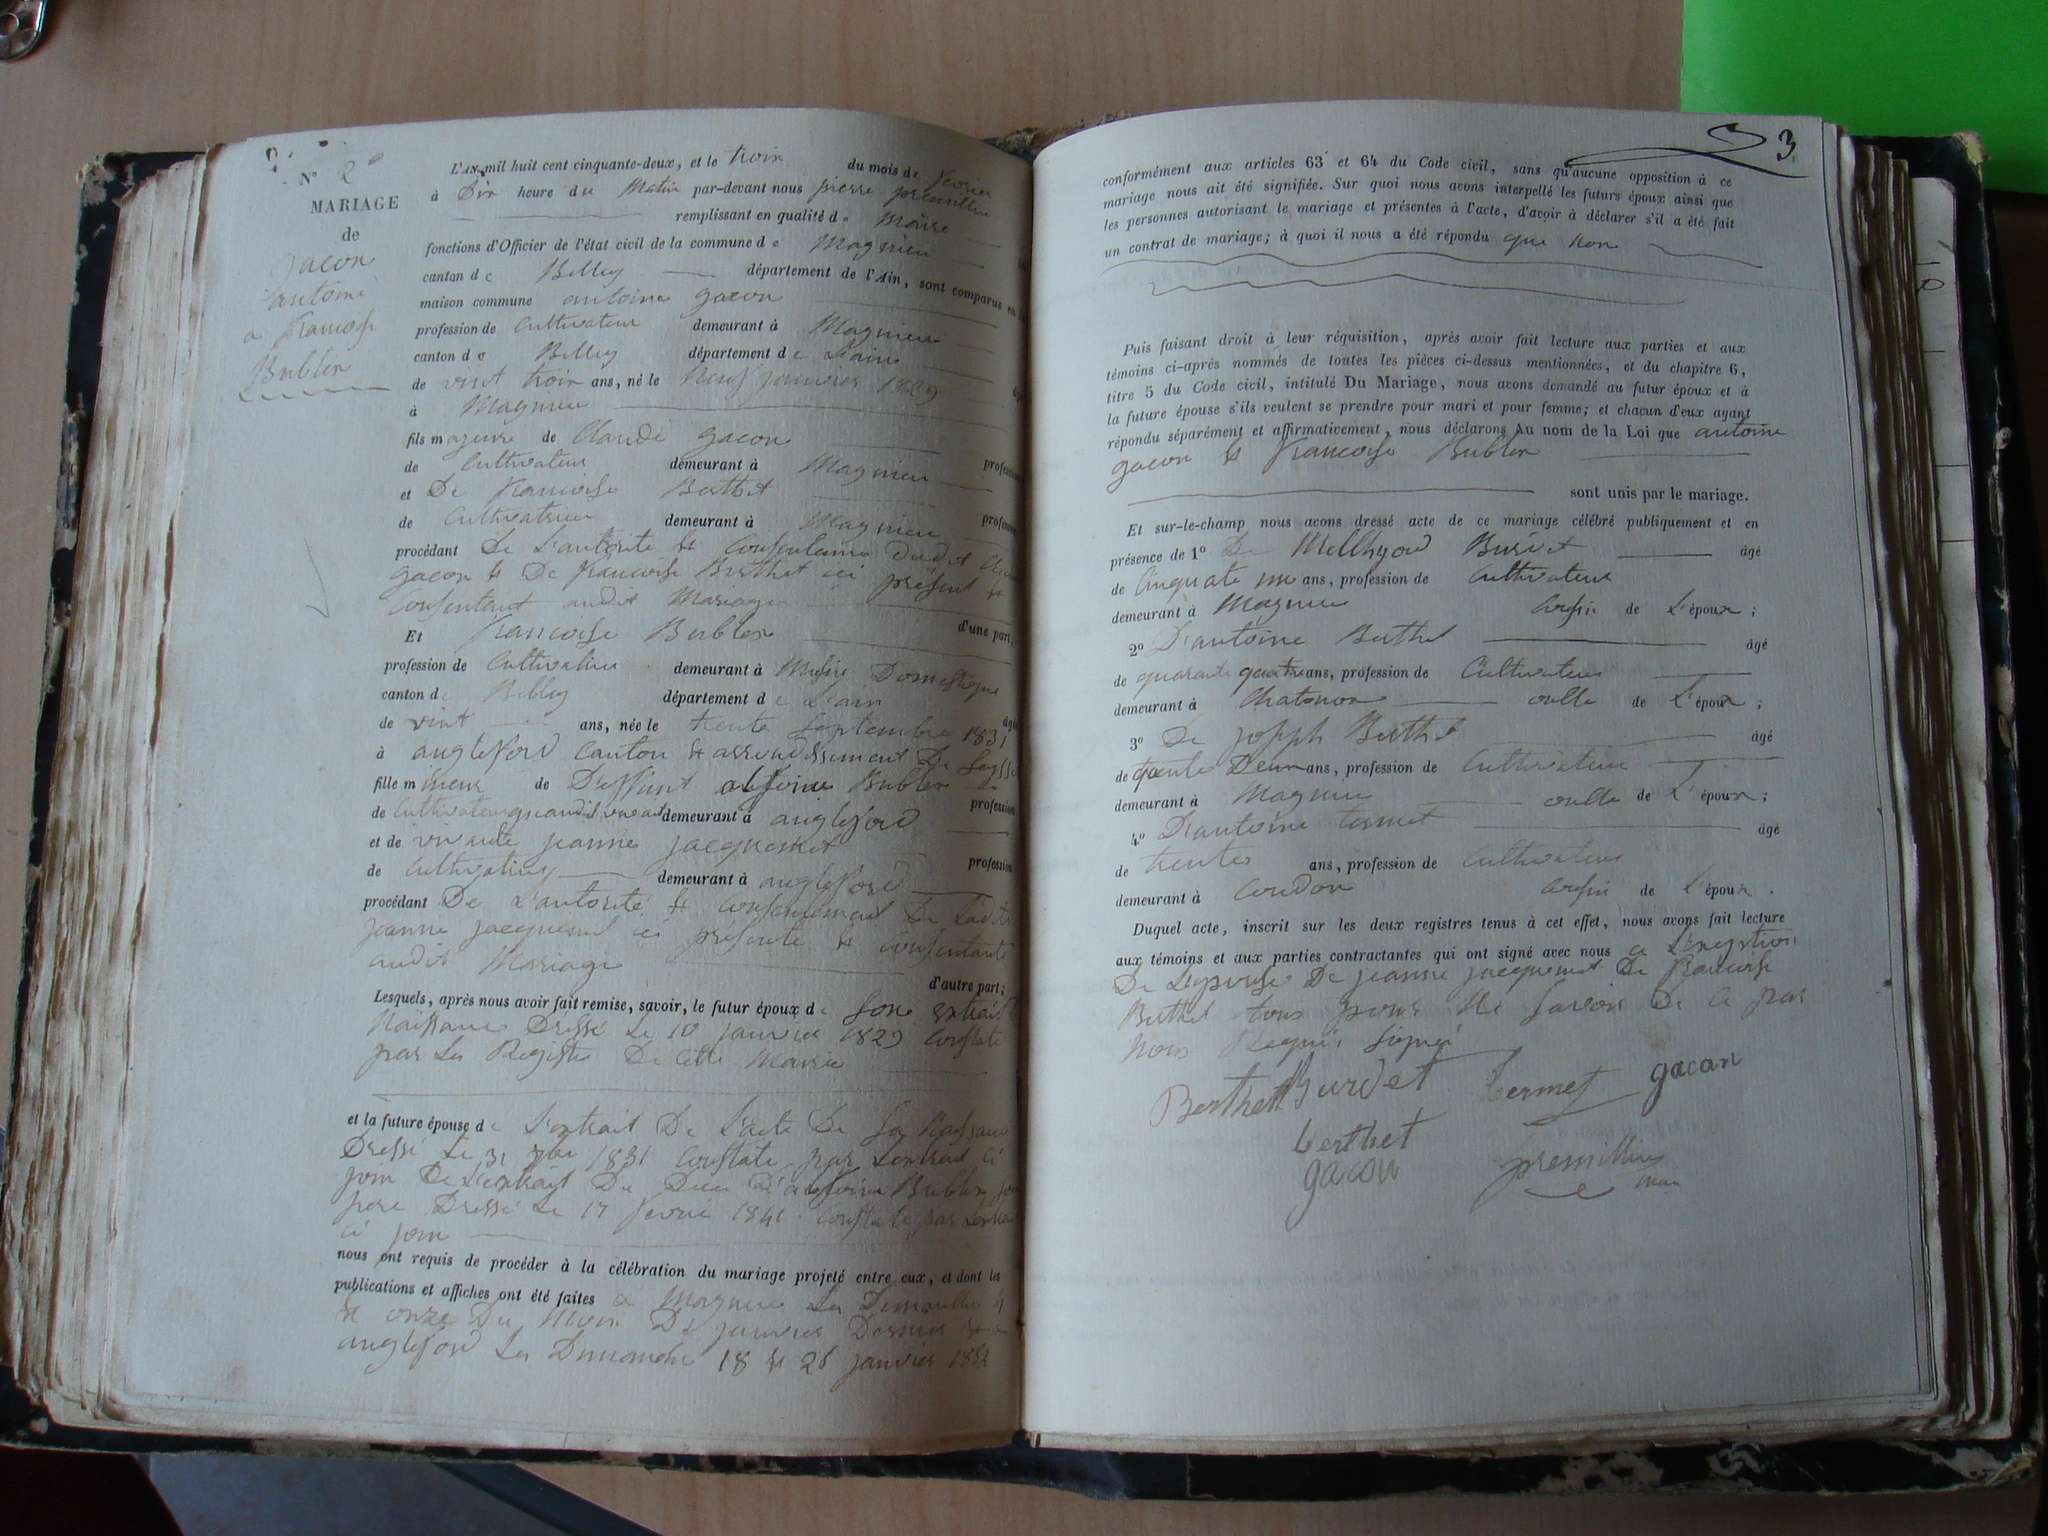 N° 2
MARIAGE
de
Gacon
antoine
a francoise
Bublex
L'AN mil huit cent cinquante-deux, et le troix du mois de fevrier
à Dix heure du Matin par-devant nous pierre premillieu
remplissant en qualité de Maire
fonctions d'Officier de l'état civil de la commune de Magnieu
canton de Belley département de l'Ain, sont comparus en
maison commune antoine gacon
profession de Cultivateur demeurant à Magnieu
canton de Belley département de L'ain
de vint troix ans, né le Neuf janvier 1829
à Magnieu
fils majeure de Claude gacon
de Cultivateur demeurant à Magnieu profession
et De francoise Berthet
de Cultivatrice demeurant à Magnieu profession
procédant De L'autorité et Consentement Dudit
gacon et De francoise Berthet ici présent et
Consentant audit Mariage
Et francoise Bublex d'une part;
profession de Cultivatrice demeurant à Domestique
canton de Belley département de L'ain
de vint ans, née le trente Septembre 1831
à angleford Canton et arrondissement De
fille mineur de Deffunt Bublex
de Cultivateur demeurant à angleford profession
et de vivante jeanne jacquemet
de Cultivatrice demeurant à angleford profession
procédant De L'autorité et Consentement De Ladite
jeanne jacquemet ici présente et Consentante
audit Mariage
d'autre part;
Lesquels, après nous avoir fait remise, savoir, le futur époux de Son extrait
Naissance Dressé Le 10 janvier 1829 Constaté
par Les Registre De Cette Mairie
et la future épouse de L'extrait De L'acte De Sa Naissance
Dressé Le 31 1831 Constaté par Lextrait Ci
join De L'extrait Du Décè Bublex
pere Dressé Le 17 fevrié 1841 Constaté par
Ci join
nous ont requis de procéder à la célébration du mariage projeté entre eux, et dont les
publications et affiches ont été faites a Magnieu Les Dimanche 4
et onze Du Mois De janvier Dernier et a
angleford Les Dimanche 18 et 25 janvier 1852
3
conformément aux articles 63 et 64 du Code civil, sans qu'aucune opposition à ce
mariage nous ait été signifiée. Sur quoi nous avons interpellé les futurs époux ainsi que
les personnes autorisant le mariage et présentes à l'acte, d'avoir à déclarer s'il a été fait
un contrat de mariage; à quoi il nous a été répondu que non
Puis faisant droit à leur réquisition, après avoir fait lecture aux parties et aux
témoins ci-après nommés de toutes les pièces ci-dessus mentionnées, et du chapitre 6,
titre 5 du Code civil, intitulé Du Mariage, nous avons demandé au futur époux et à
la future épouse s'ils veulent se prendre pour mari et pour femme; et chacun d'eux ayant
répondu séparément et affirmativement, nous déclarons Au nom de la Loi que antoine
gacon et francoise Bublex
sont unis par le mariage.
Et sur-le-champ nous avons dressé acte de ce mariage célébré publiquement et en
présence de 1° De Burdet âgé
de Cinquate un ans, profession de Cultivateur
demeurant à Magnieu Cousin de L'époux;
2° D'antoine Berthet âgé
de quarante quatre ans, profession de Cultivateur
demeurant à Chatonod oncle de L'époux;
3° De joseph Berthet âgé
de trente Deux ans, profession de Cultivateur
demeurant à Magnieu oncle de L'époux;
4° D'antoine termet âgé
de trente ans, profession de Cultivateur
demeurant à Condon Cousin de L'époux.
Duquel acte, inscrit sur les deux registres tenus à cet effet, nous avons fait lecture
aux témoins et aux parties contractantes qui ont signé avec nous a L'exeption
De L'epouse De jeanne jacquemet De francoise
Berthet tous pour Ne Savoir De Ce par
Nous Requi Signé
Berthet Burdet termet gacon
berthet
gacon premillieu